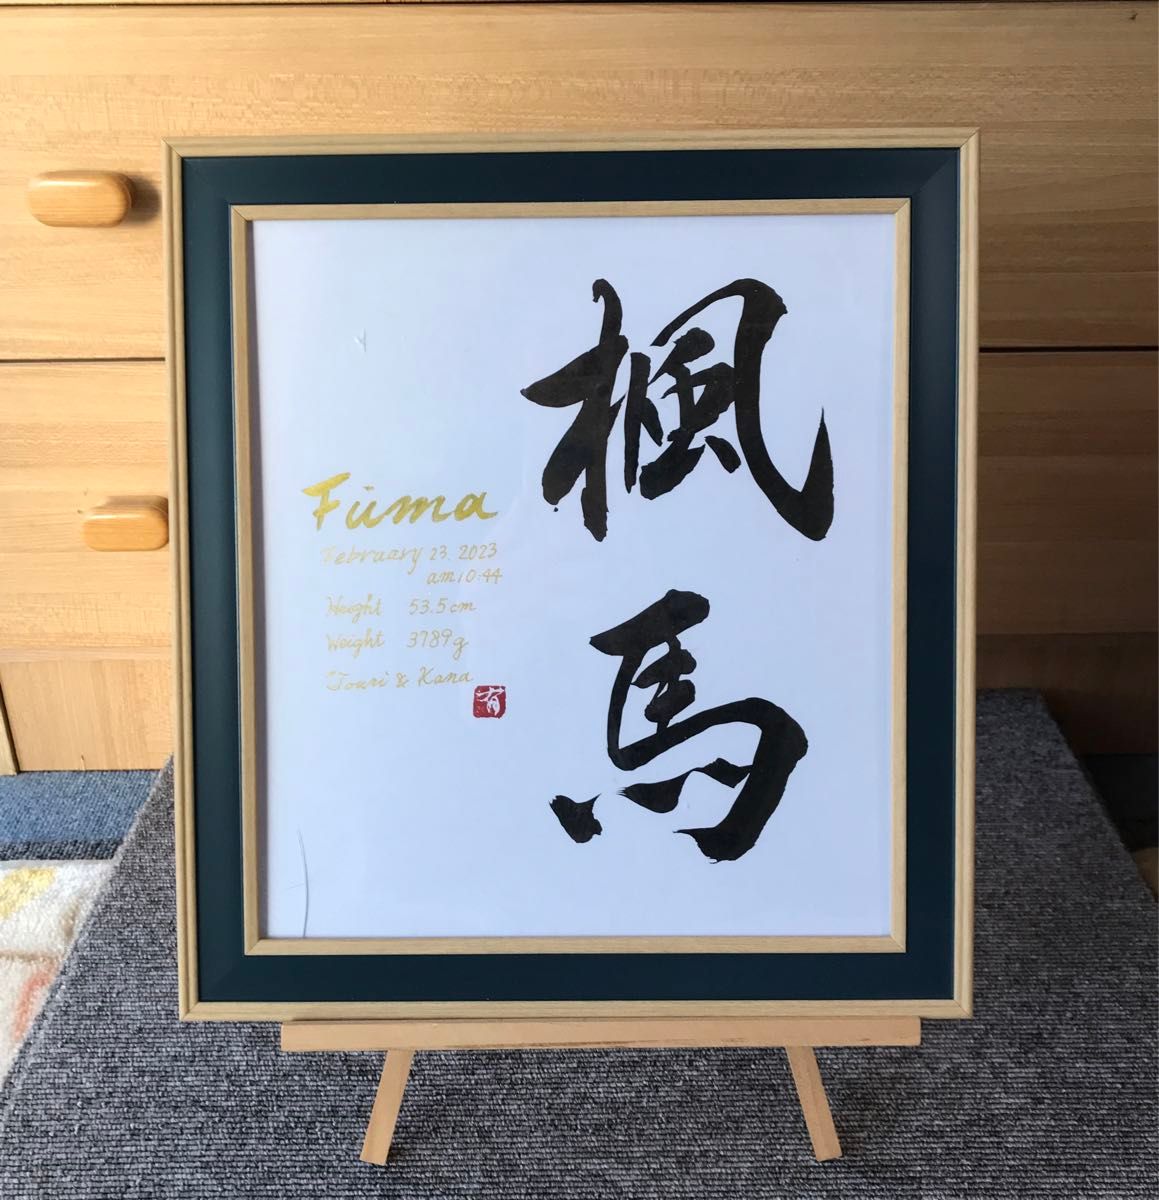 楓馬
Fūma
February 23. 2023
am10:44
Height 53.5cm
Weight 3789g
Touri & Kana
有